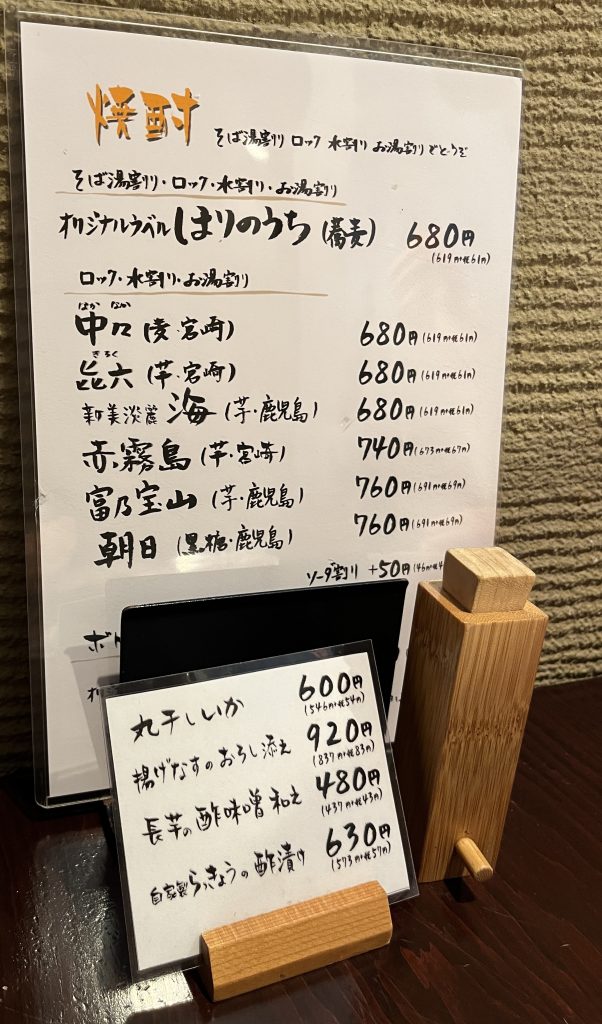 焼酎
そば湯割り ロック 水割り お湯割り どとうぞ
そば湯割り・ロック・水割り・お湯割り
オリジナルラベル はりのうち (蕎麦) 680円
(619円+税61円)
ロック・水割り・お湯割り
なか なか
中々 (麦・宮崎) 680円 (619円+税61円)
きろく
㐂六 (芋・宮崎) 680円 (619円+税61円)
新美淡麗 海 (芋・鹿児島) 680円 (619円+税61円)
赤霧島 (芋・宮崎) 740円 (673円+税67円)
富乃宝山 (芋・鹿児島) 760円 (691円+税69円)
朝日 (黒糖・鹿児島) 760円 (691円+税69円)
ソーダ割り +50円
丸干しいか 600円
(546円+税54円)
揚げなすのおろし添え 920円
(837円+税83円)
長芋の酢味噌和え 480円
(437円+税43円)
自家製らっきょうの酢漬け 630円
(573円+税57円)